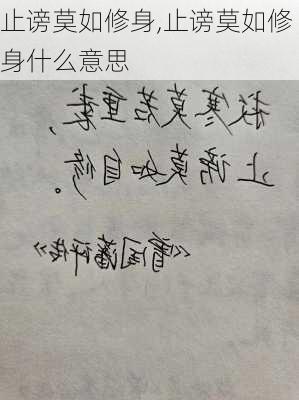 止谤莫如修身,止谤莫如修
身什么意思
救寒莫若重裘,
止谤莫如自修。
《曾国藩评传》